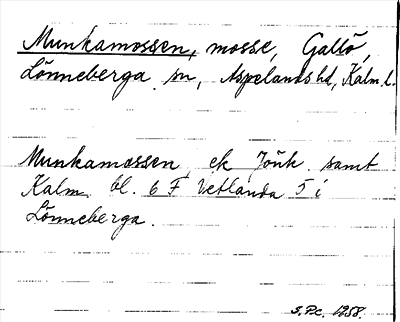 Munkamossen, mosse, Gallö,
Lönneberga sn, Aspelands hd, Kalm. l.
Munkamossen ek Jönk. samt
Kalm. bl. 6 F Vetlanda 5 i
Lönneberga.
S.Pc. 1958.